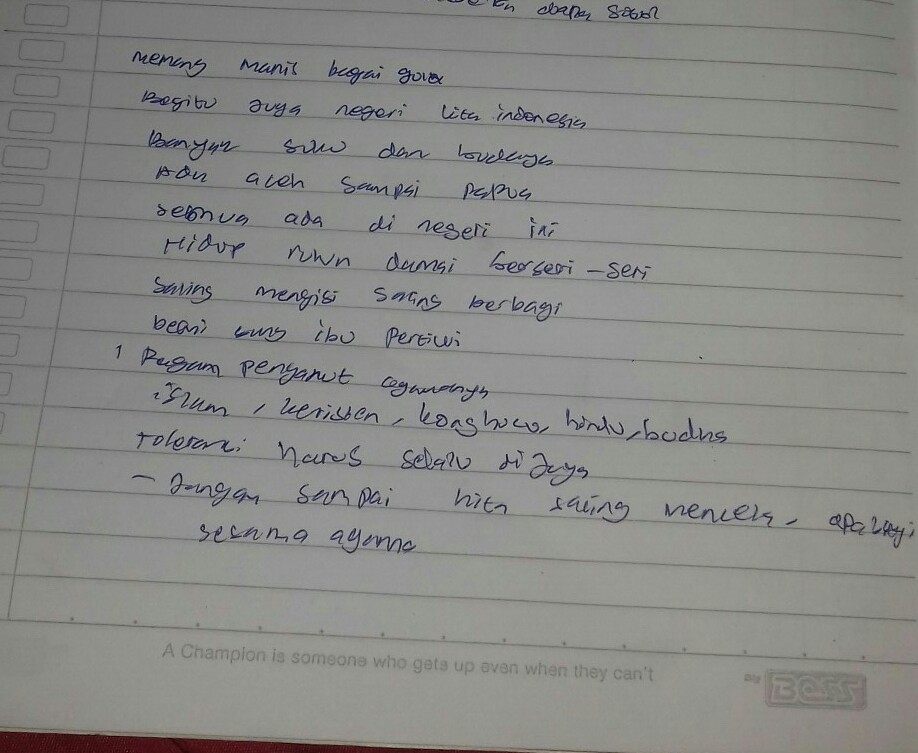 memang manis bagai gula
Begitu Juga negeri kita indonesia
Banyak suku dan budaya
Ada aceh sampai papua
semua ada di negeri ini
Hidup rukun damai berseri-seri
saling mengisi saling berbagi
ibu Pertiwi
1 Ragam penganut agamanya
islam, keristen, konghucu, hindu, budha
toleransi harus selalu di Jaga
- Jangan sampai kita saling mencela, apalagi
sesama agama
A Champion is someone who gets up even when they can't
by BOSS